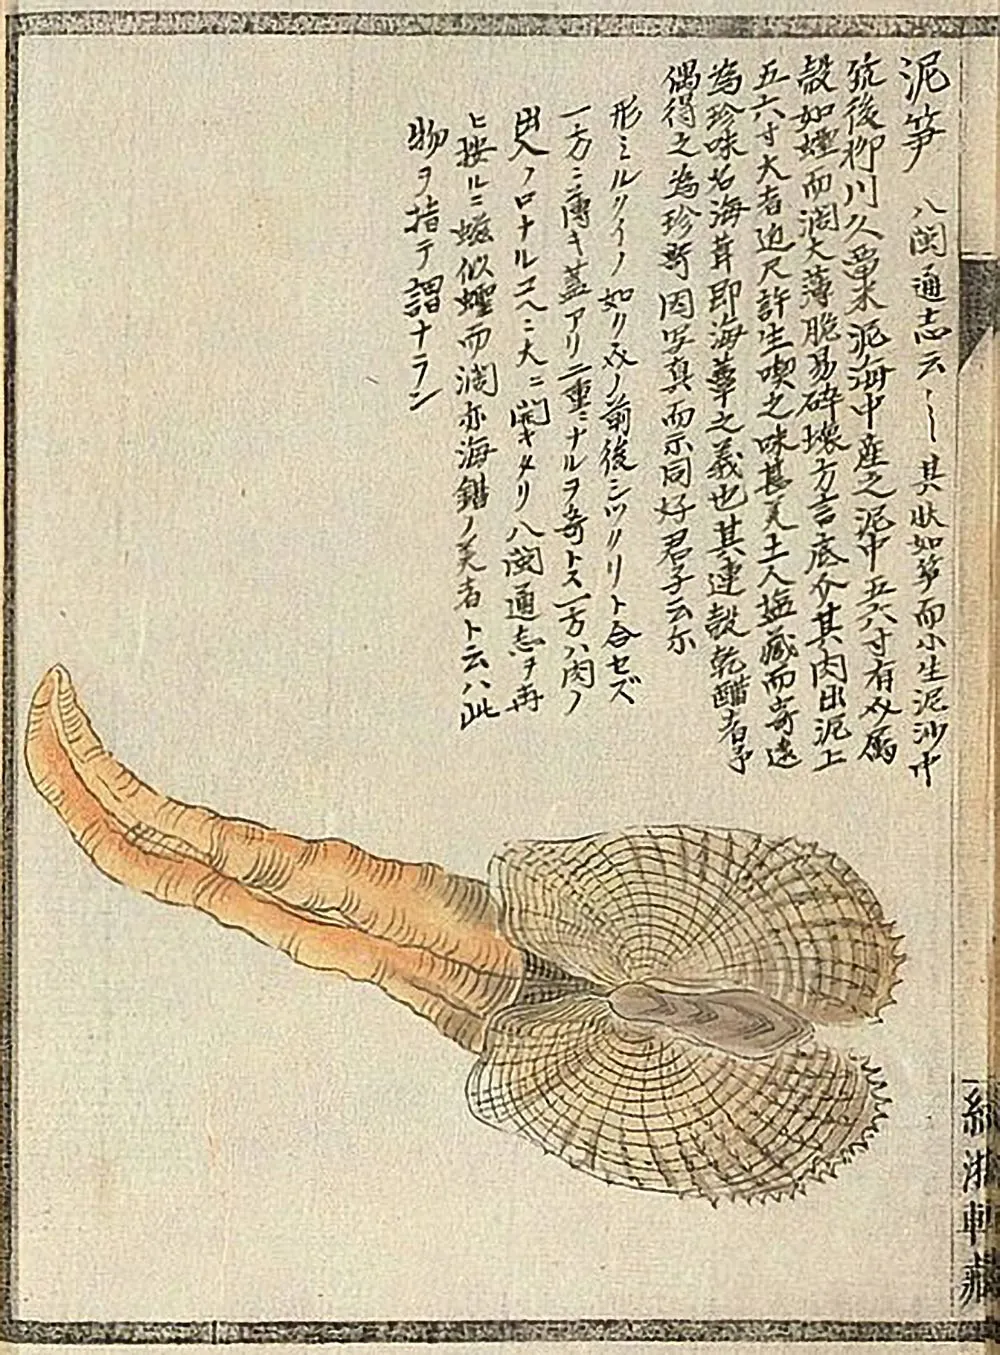 泥笋 八閩通志云〻其状如笋而小生泥沙中
筑後柳川久留米泥海中産之泥中五六寸有双
殻如蟶而濶大薄脆易砕壊方言底介其肉出泥上
五六寸大者近尺許生喫之味甚美土人塩蔵而寄遠
為珍味名海茸即海蕈之義也其連殻乾醋者予
偶得之為珍玩因写真而示同好君子云尓
形ミルクイノ如クメノ前後シツクリト合セズ
一方ニ薄キ蓋アリ二重ニナルヲ奇トス一方ハ肉ノ
出入ノ口ナルユヘニ大ニ開キタリ八閩通志ヲ再
ヒ按ルニ蟶似蟶而濶亦海錯ノ美者ト云ハ此
物ヲ指テ謂ナラン